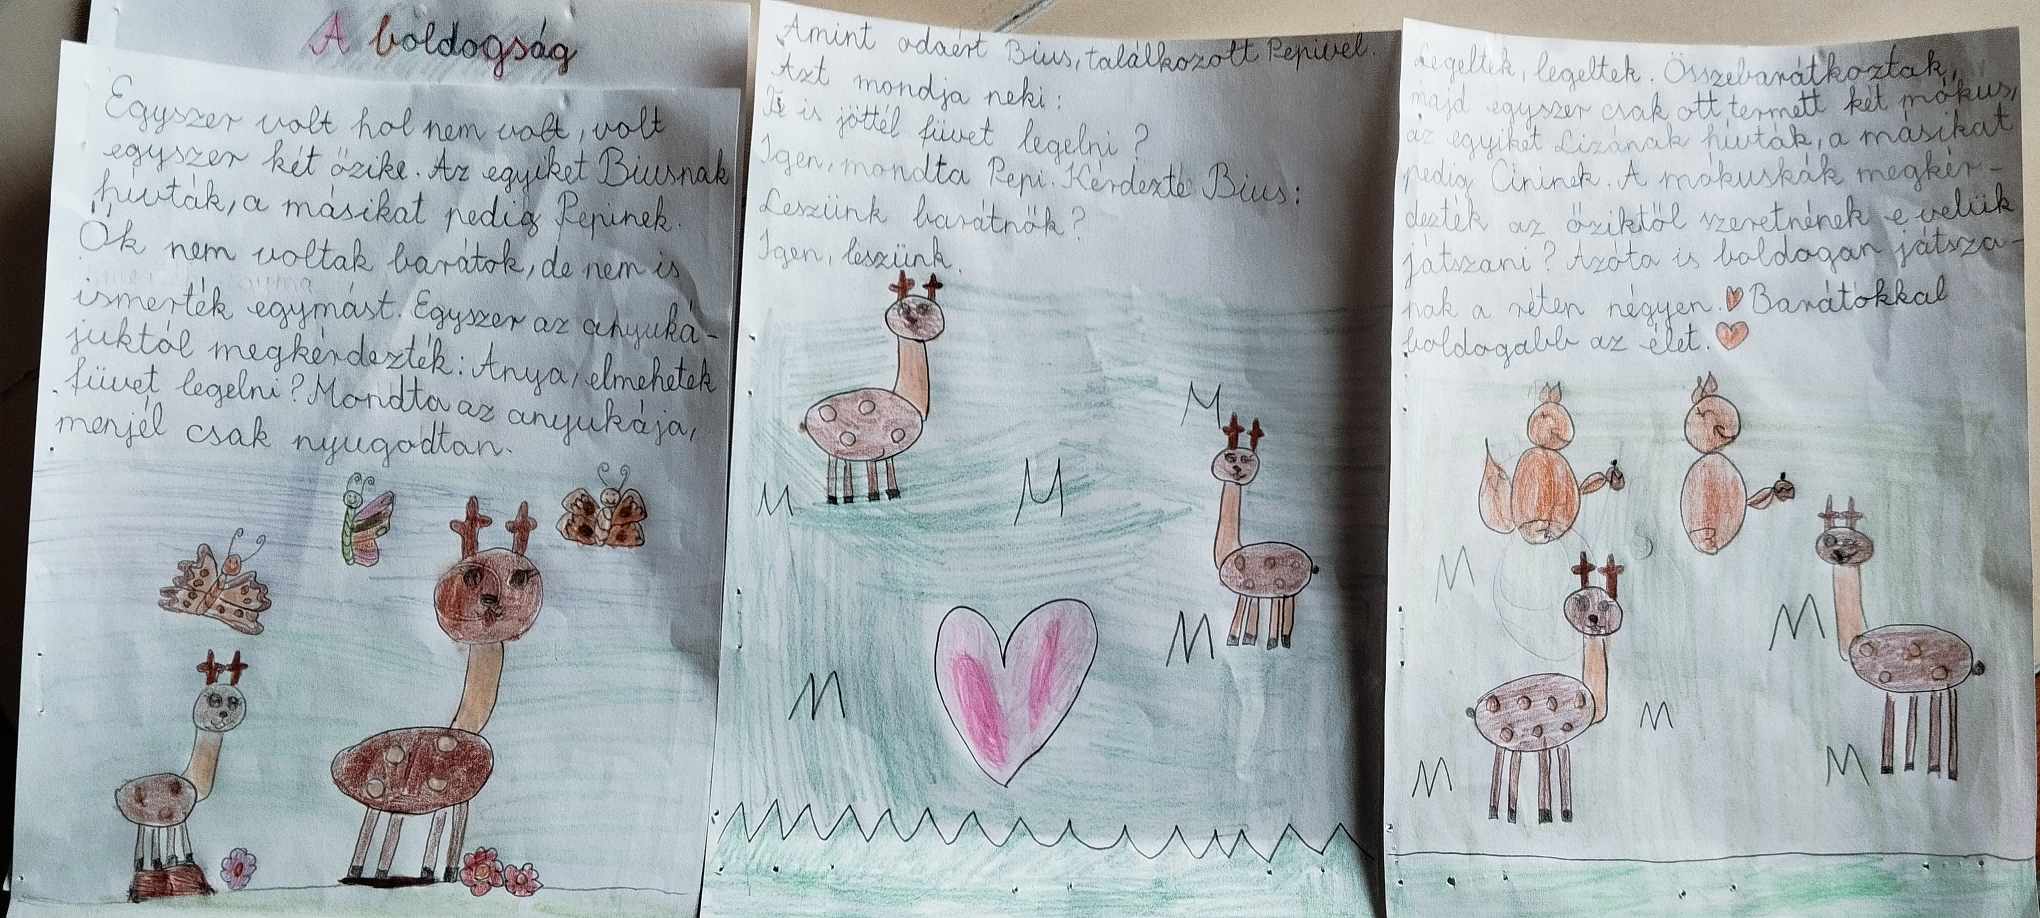 A boldogság
Egyszer volt hol nem volt, volt
egyszer két őzike. Az egyiket Biusnak
hívták, a másikat pedig Pepinek.
Ők nem voltak barátok, de nem is
ismerték egymást. Egyszer az anyuká-
juktól megkérdezték: Anya, elmehetek
füvet legelni? Mondta az anyukája,
menjél csak nyugodtan.
Amint odaért Bius, találkozott Pepivel.
Azt mondja neki:
Te is jöttél füvet legelni?
Igen, mondta Pepi. Kérdezte Bius:
Leszünk barátnők?
Igen, leszünk.
Legeltek, legeltek. Összebarátkoztak,
majd egyszer csak ott termett két mókus,
az egyikét Lizának hívták, a másikat
pedig Cininek. A mókuskák megkér-
dezték az őziktől szeretnének e velük
játszani? Azóta is boldogan játsza-
nak a réten négyen. Barátokkal
boldogabb az élet.